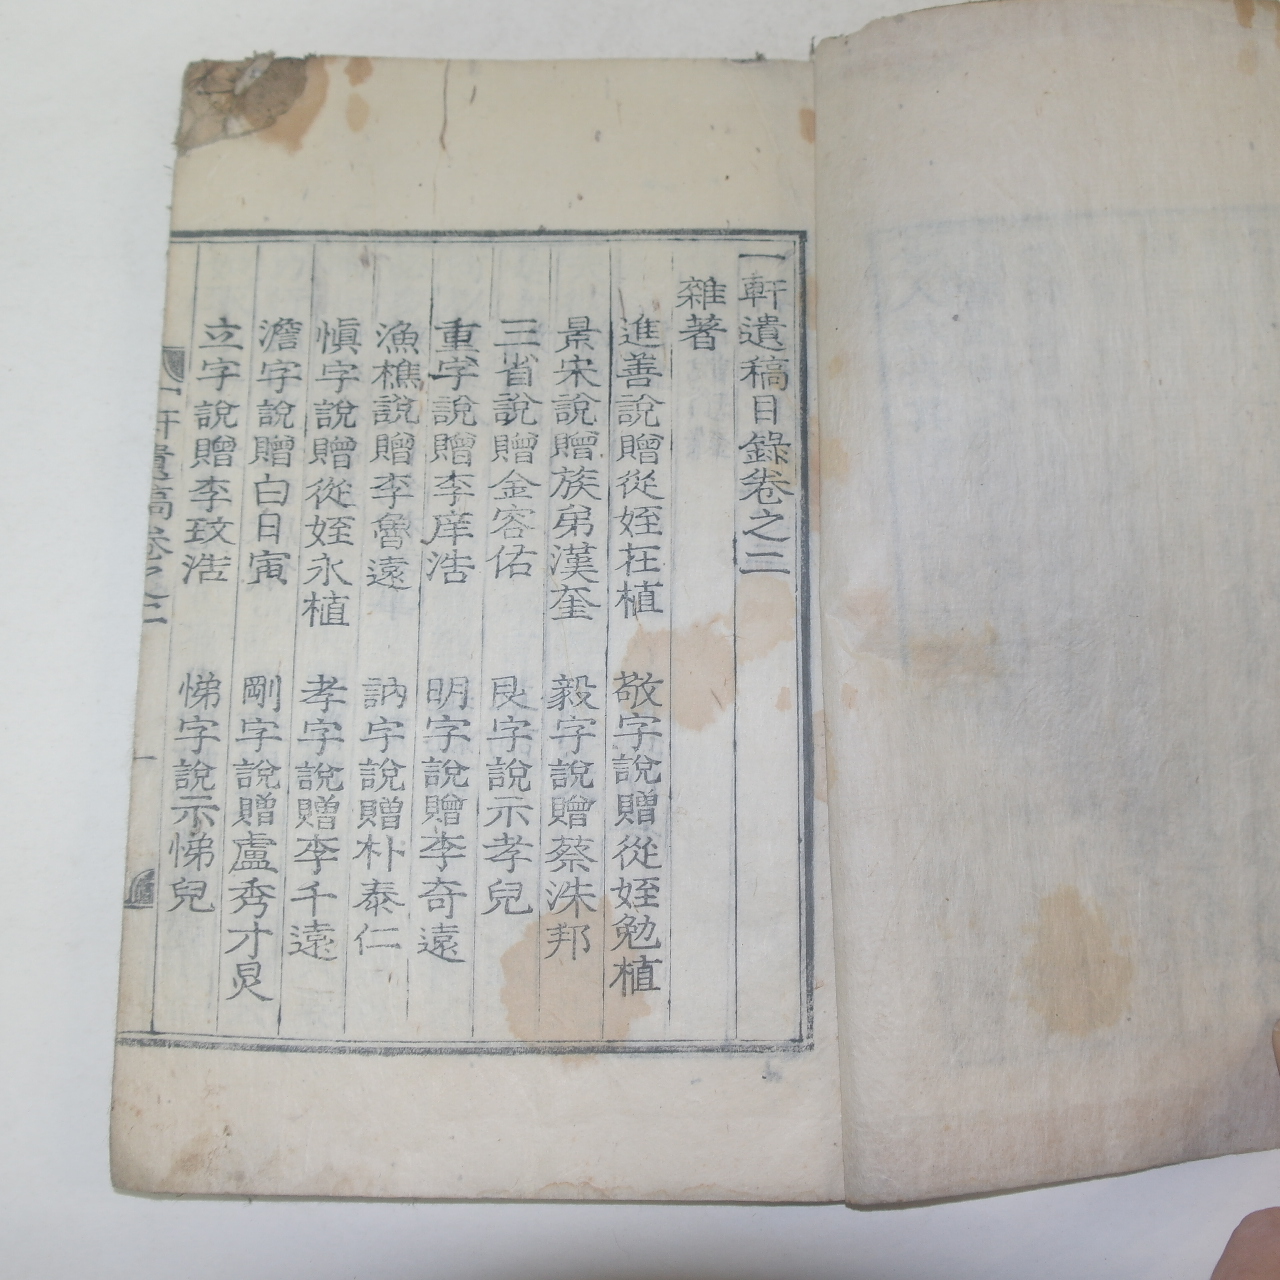 一軒遺稿目錄卷之二
雜著
進善說贈從姪在植 敬字說贈從姪勉植
景宋說贈族弟漢奎 毅字說贈蔡洙邦
三省說贈金容佑 艮字說示孝兒
重字說贈李庠浩 明字說贈李奇遠
漁樵說贈李魯遠 訥字說贈朴泰仁
愼字說贈從姪永植 孝字說贈李千遠
澹字說贈白日寅 剛字說贈盧秀才炅
立字說贈李玟浩 悌字說示悌兒
一軒遺稿卷之二 一